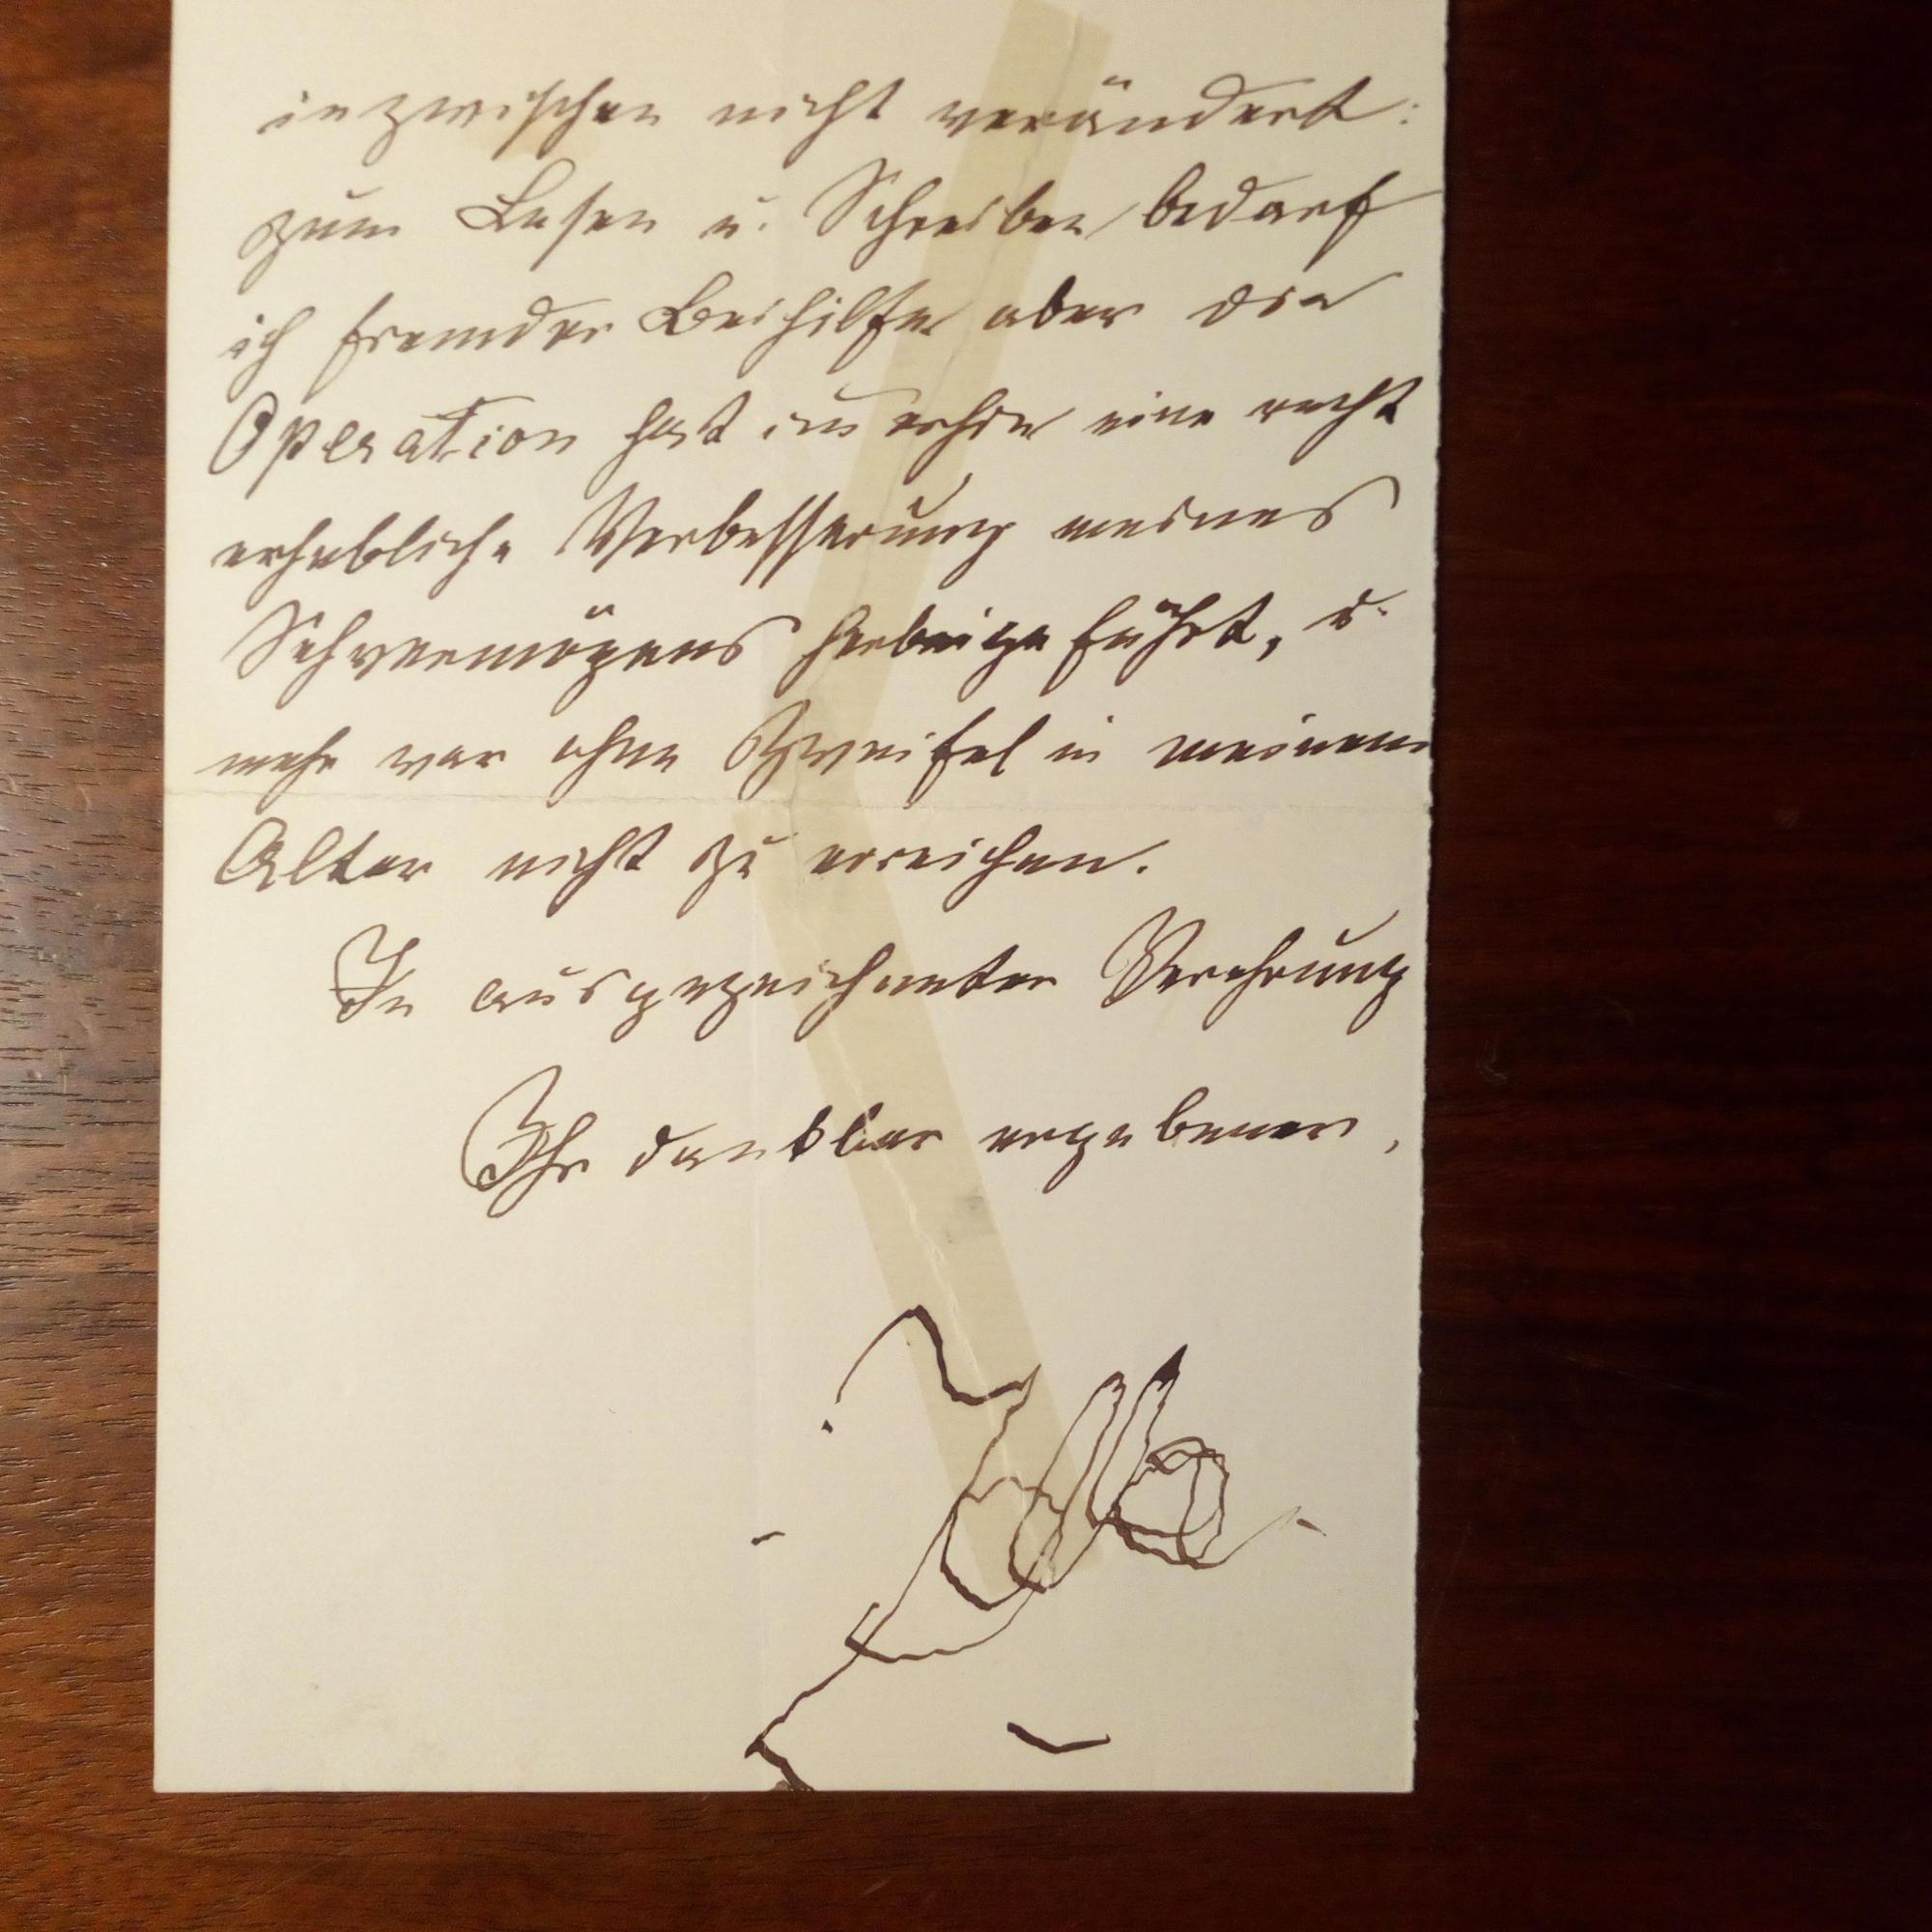 inzwischen nicht verändert:
zum Lesen u. Schreiben bedarf
ich fremder Beihilfe aber die
Operation hat imerhin eine recht
erhebliche Verbesserung meines
Sehvermögens herbeigeführt, u.
mehr war ohne Zweifel in meinem
Alter nicht zu erreichen.
In ausgezeichneter Verehrung
Ihr dankbar ergebener,